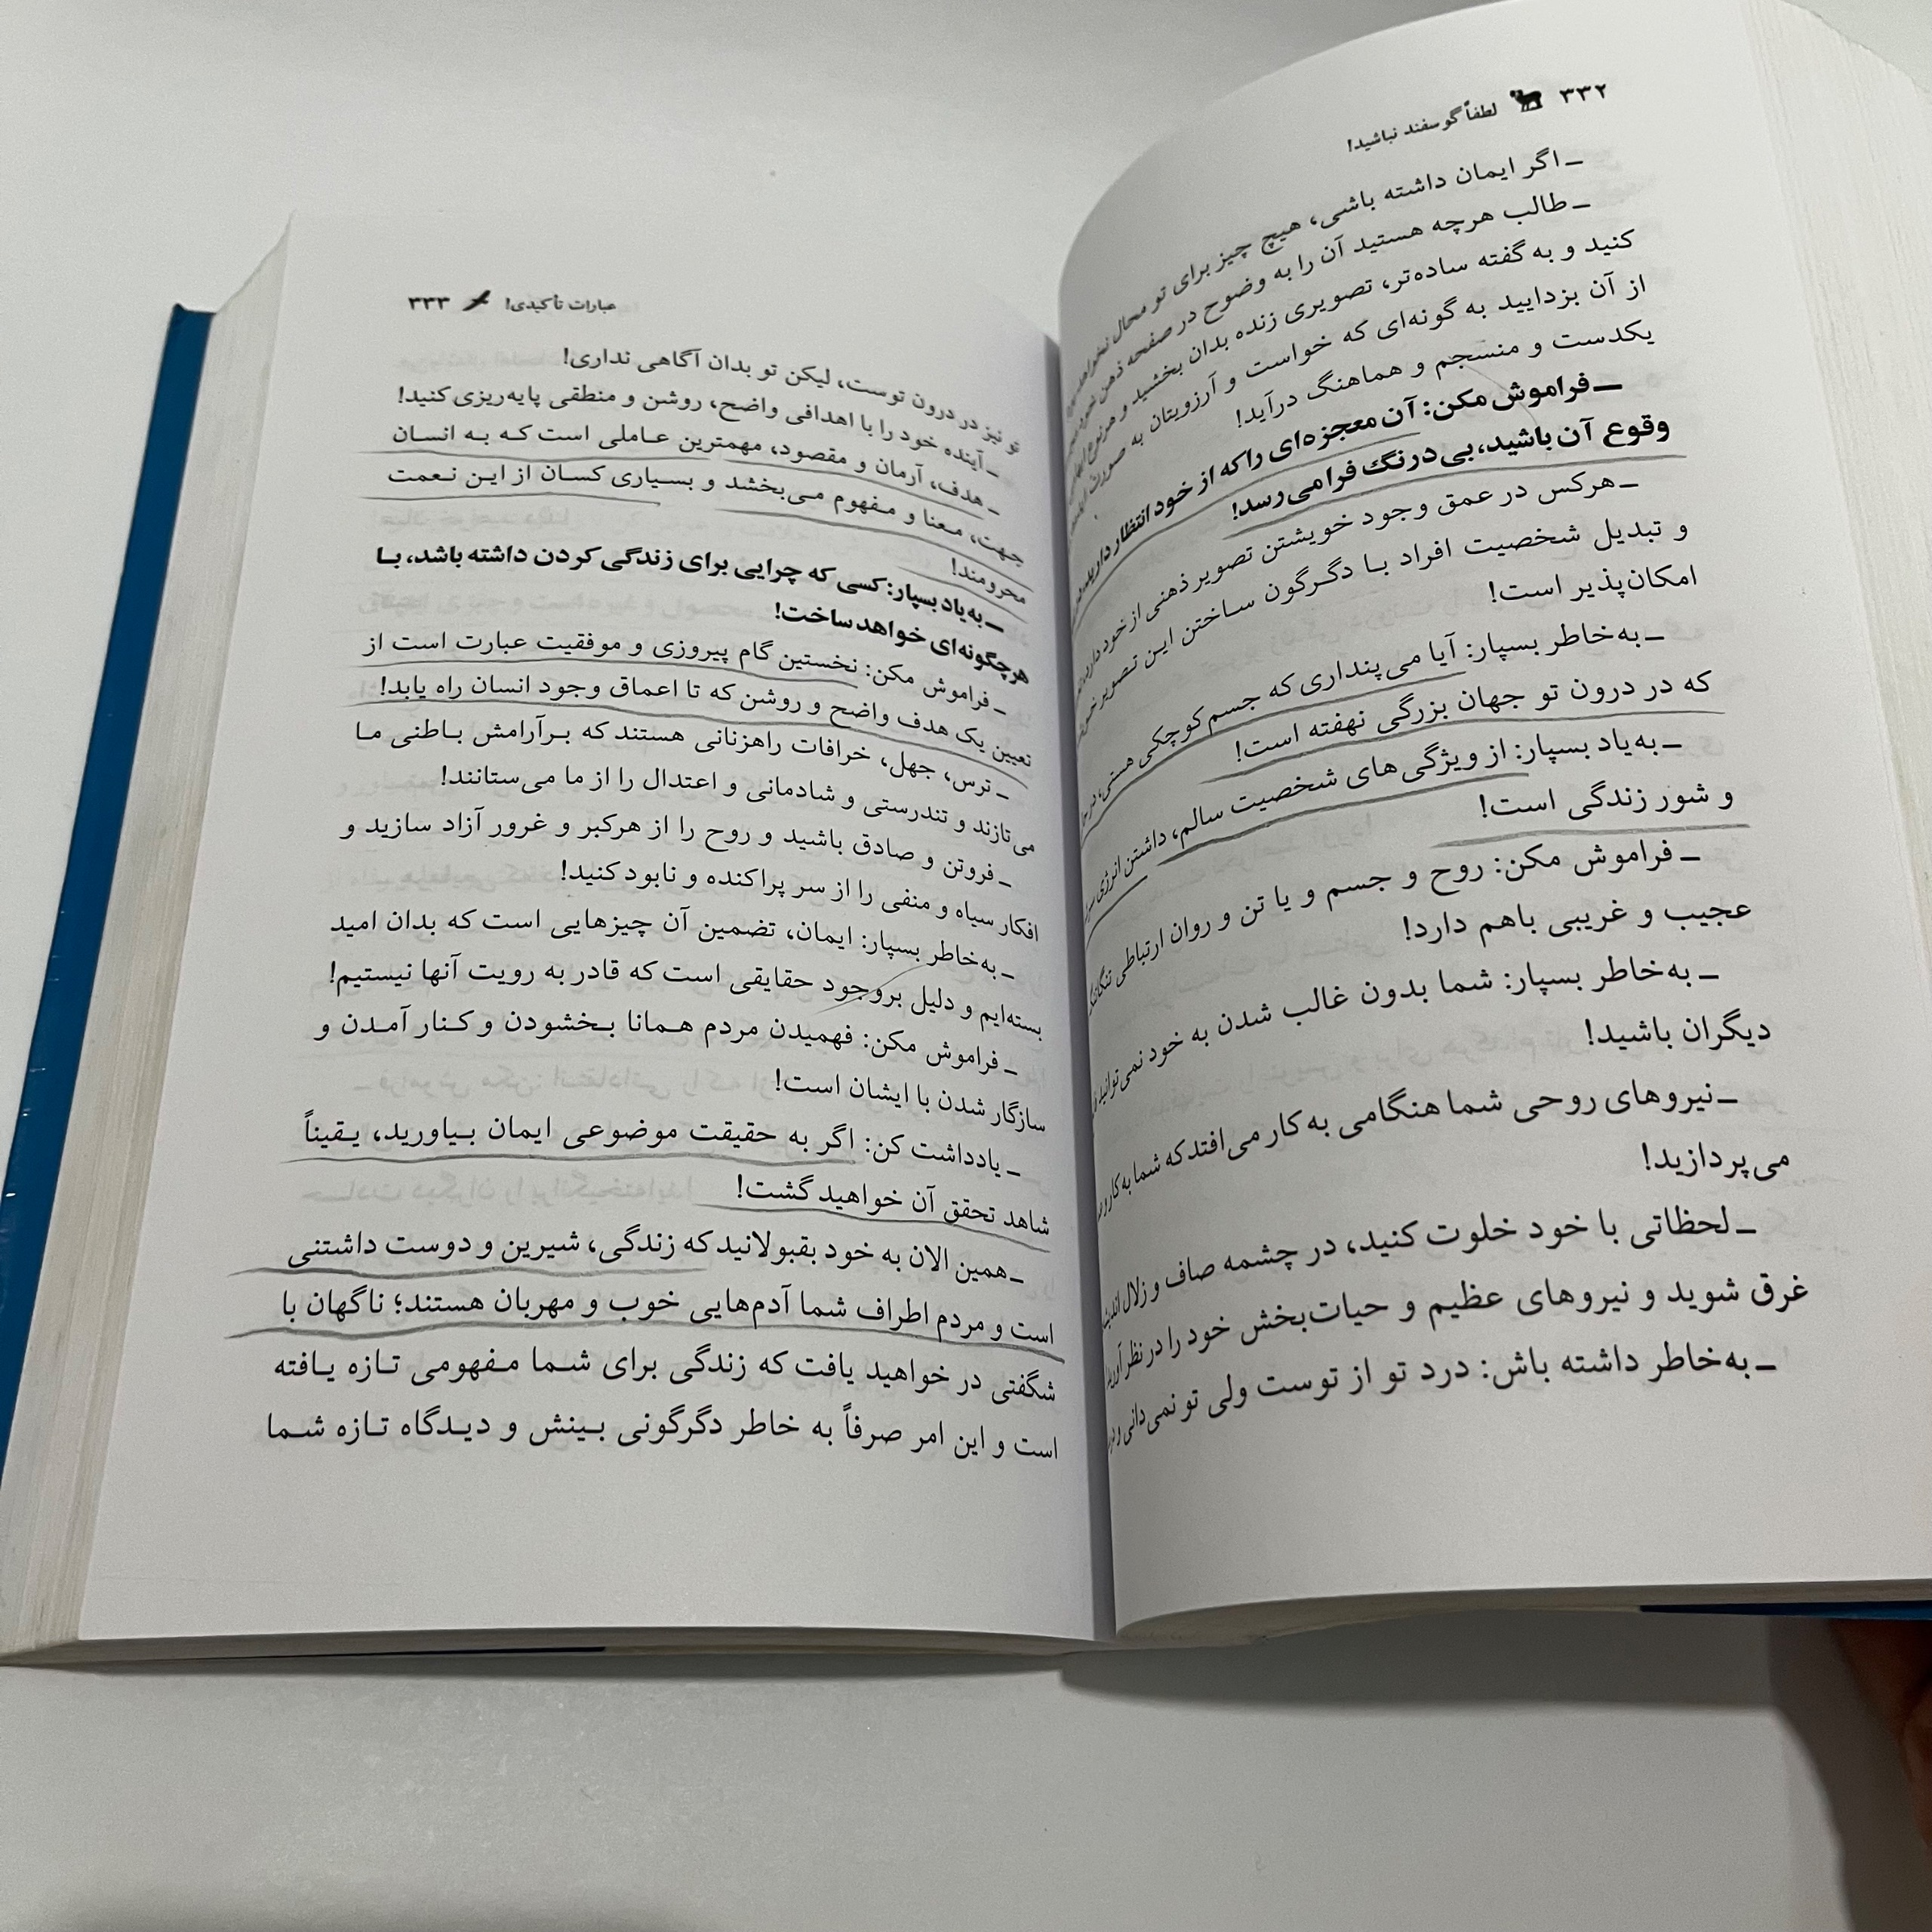 ۳۳۲ لطفاً گوسفند نباشید!
ـ اگر ایمان داشته باشی، هیچ چیز برای تو محال نخواهد بود
ـ طالب هرچه هستید آن را به وضوح در صفحه ذهن خود
کنید و به گفته ساده‌تر، تصویری زنده بدان بخشید و هر نوع
از آن بزدایید به گونه‌ای که خواست و آرزویتان به صورت
یکدست و منسجم و هماهنگ درآید!
ـ فراموش مکن: آن معجزه‌ای را که از خود انتظار دارید،
وقوع آن باشید، بی‌درنگ فرا می‌رسد!
ـ هرکس در عمق وجود خویشتن تصویر ذهنی از خود دارد،
و تبدیل شخصیت افراد با دگرگون ساختن این تصویر
امکان‌پذیر است!
ـ به‌خاطر بسپار: آیا می‌پنداری که جسم کوچکی هستی،
که در درون تو جهان بزرگی نهفته است!
ـ به‌یاد بسپار: از ویژگی‌های شخصیت سالم، داشتن انرژی
و شور زندگی است!
ـ فراموش مکن: روح و جسم و یا تن و روان ارتباطی تنگاتنگ
عجیب و غریبی باهم دارد!
ـ به‌خاطر بسپار: شما بدون غالب شدن به خود نمی‌توانید
دیگران باشید!
ـ نیروهای روحی شما هنگامی به کار می‌افتد که شما به کار و
می‌پردازید!
ـ لحظاتی با خود خلوت کنید، در چشمه صاف و زلال
غرق شوید و نیروهای عظیم و حیات‌بخش خود را در نظر
ـ به‌خاطر داشته باش: درد تو از توست ولی تو نمی‌دانی و
عبارات تأکیدی! ۳۳۳
تو نیز در درون توست، لیکن تو بدان آگاهی نداری!
ـ آینده خود را با اهدافی واضح، روشن و منطقی پایه‌ریزی کنید!
ـ هدف، آرمان و مقصود، مهمترین عاملی است که به انسان
جهت، معنا و مفهوم می‌بخشد و بسیاری کسان از این نعمت
محرومند!
ـ به‌یاد بسپار: کسی که چرایی برای زندگی کردن داشته باشد، با
هرچگونه‌ای خواهد ساخت!
ـ فراموش مکن: نخستین گام پیروزی و موفقیت عبارت است از
تعیین یک هدف واضح و روشن که تا اعماق وجود انسان راه یابد!
ـ ترس، جهل، خرافات راهزنانی هستند که برآرامش باطنی ما
می‌تازند و تندرستی و شادمانی و اعتدال را از ما می‌ستانند!
ـ فروتن و صادق باشید و روح را از هرکبر و غرور آزاد سازید و
افکار سیاه و منفی را از سر پراکنده و نابود کنید!
ـ به‌خاطر بسپار: ایمان، تضمین آن چیزهایی است که بدان امید
بسته‌ایم و دلیل بروجود حقایقی است که قادر به رویت آنها نیستیم!
ـ فراموش مکن: فهمیدن مردم همانا بخشودن و کنار آمدن و
سازگار شدن با ایشان است!
ـ یادداشت کن: اگر به حقیقت موضوعی ایمان بیاورید، یقیناً
شاهد تحقق آن خواهید گشت!
ـ همین الان به خود بقبولانید که زندگی، شیرین و دوست داشتنی
است و مردم اطراف شما آدم‌هایی خوب و مهربان هستند؛ ناگهان با
شگفتی در خواهید یافت که زندگی برای شما مفهومی تازه یافته
است و این امر صرفاً به خاطر دگرگونی بینش و دیدگاه تازه شما